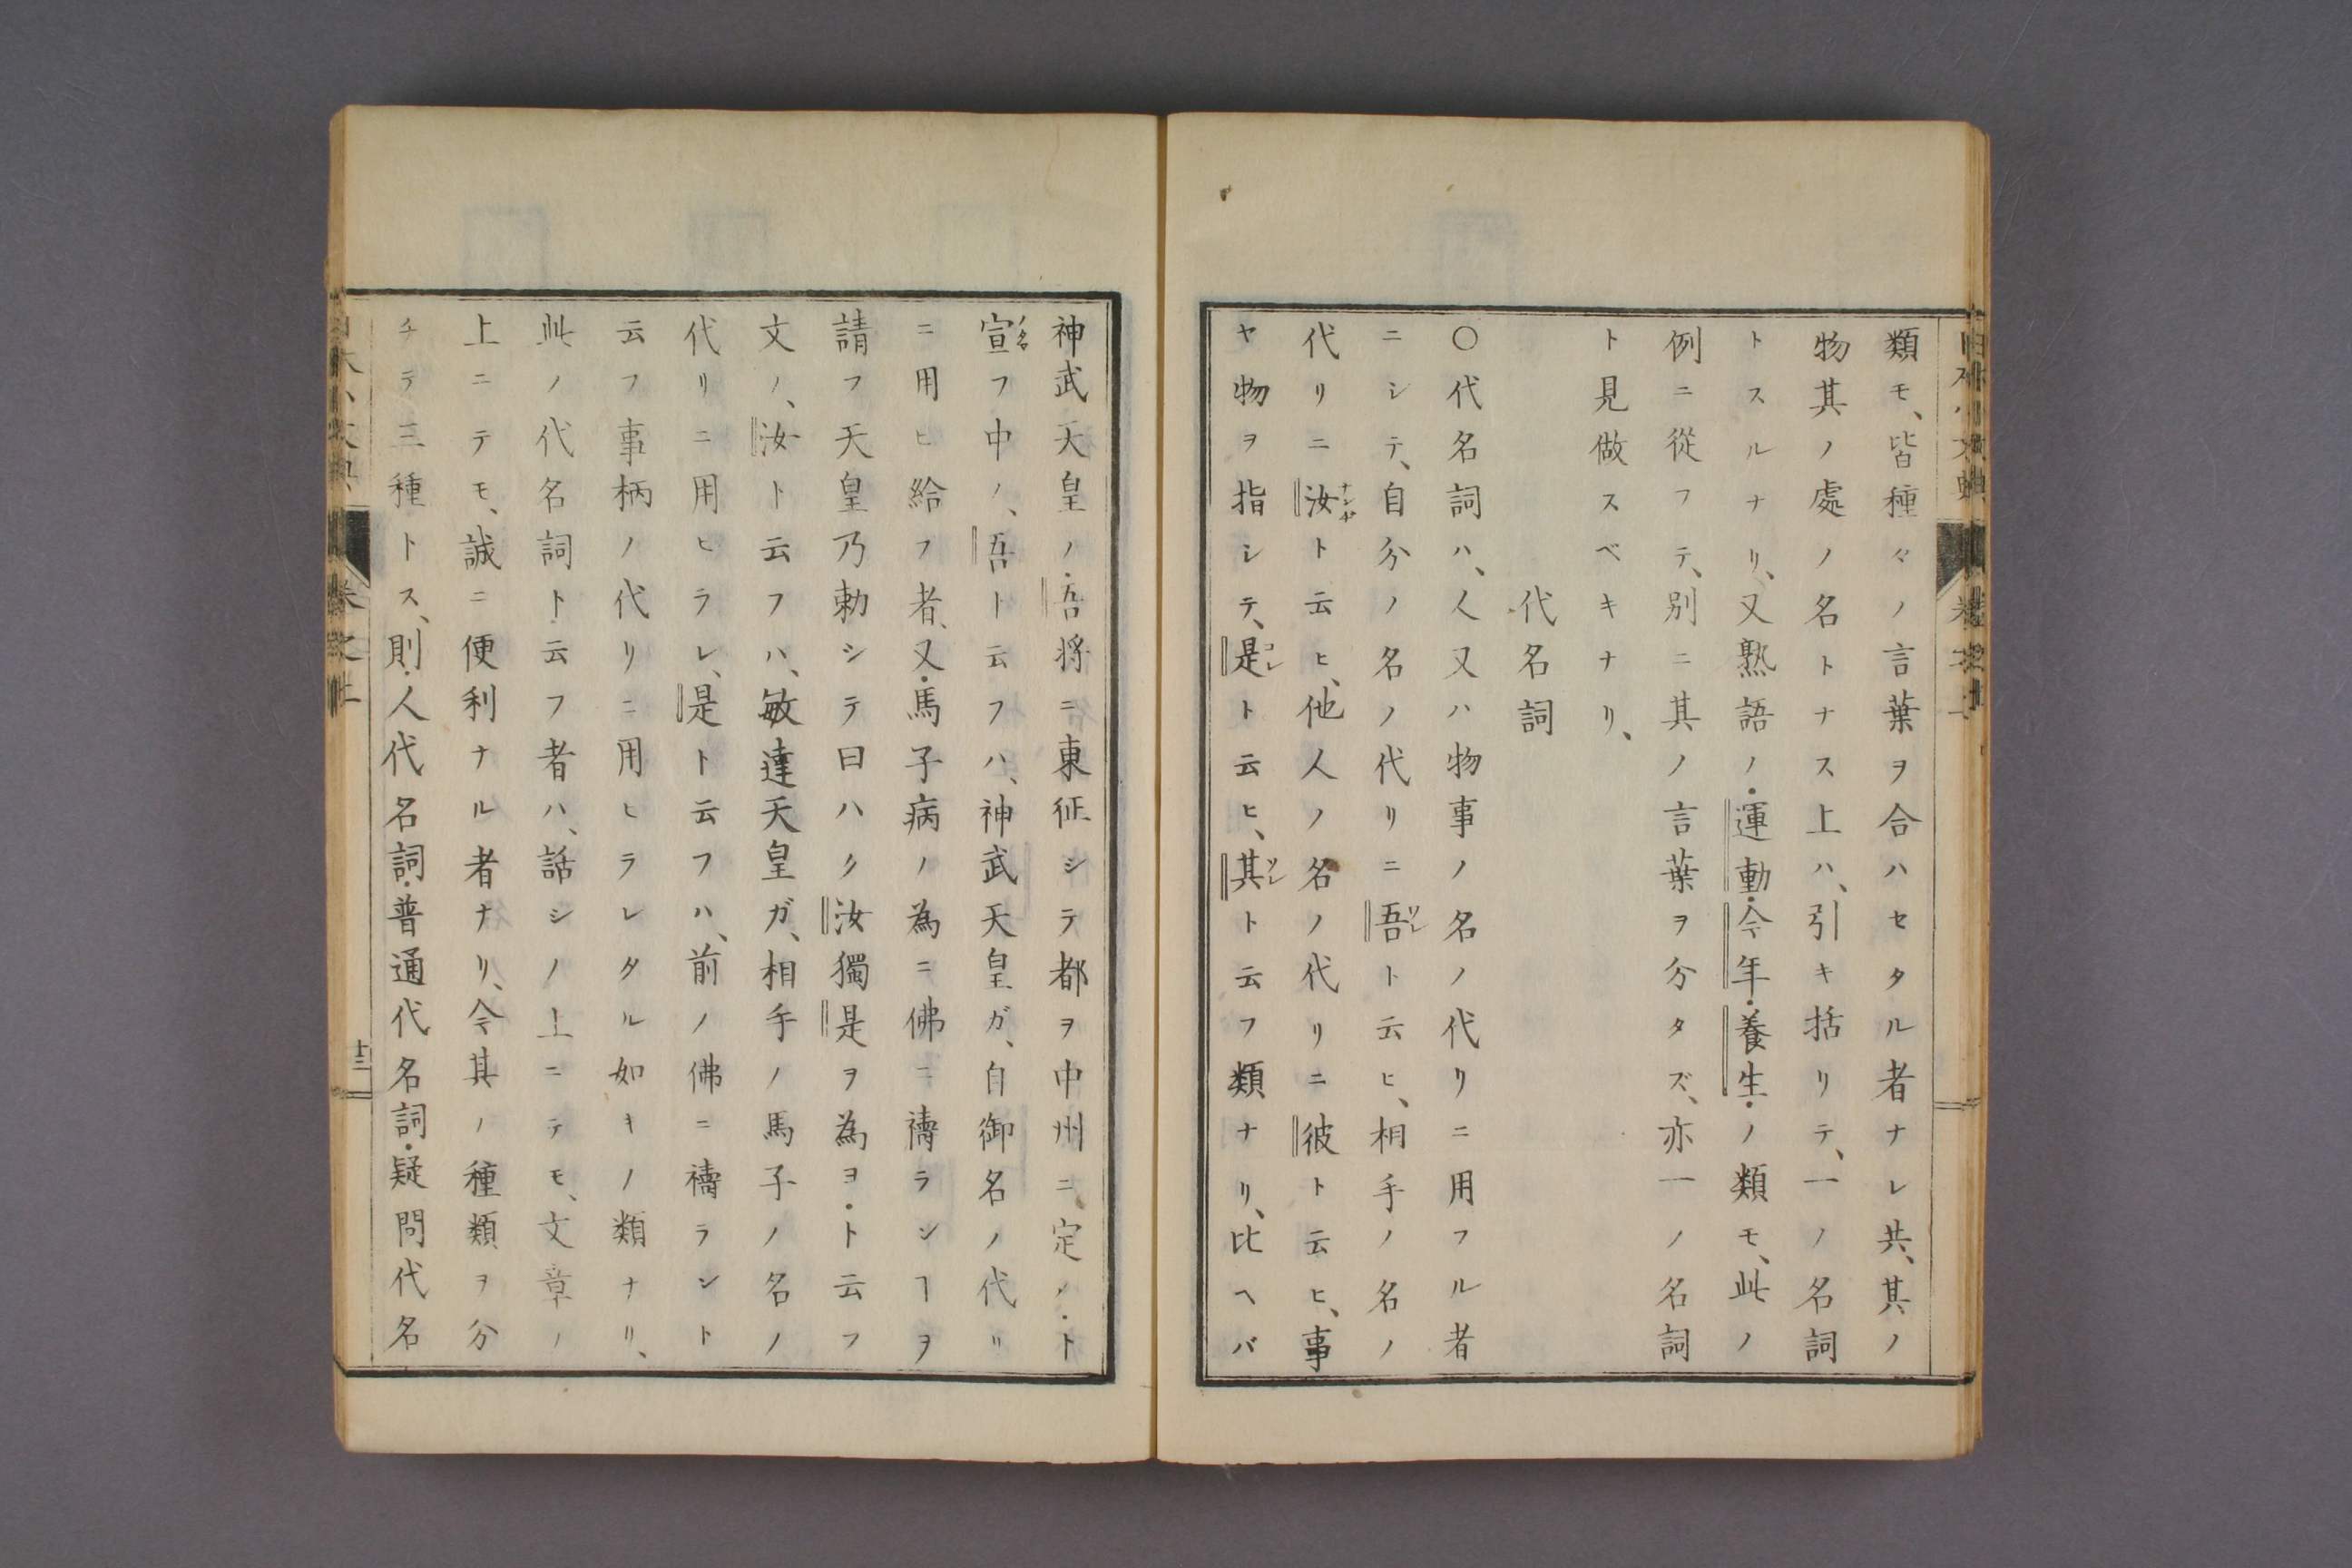 類モ、皆種々ノ言葉ヲ合ハセタル者ナレ共、其ノ
物其ノ處ノ名トナス上ハ、引キ括リテ、一ノ名詞
トスルナリ、又熟語ノ・運動・今年・養生・ノ類モ、此ノ
例ニ從フテ、別ニ其ノ言葉ヲ分タズ、亦一ノ名詞
ト見做スベキナリ、
代名詞
〇代名詞ハ、人又ハ物事ノ名ノ代リニ用フル者
ニシテ、自分ノ名ノ代リニ吾ト云ヒ、相手ノ名ノ
代リニ汝ト云ヒ、他人ノ名ノ代リニ彼ト云ヒ、事
ヤ物ヲ指シテ、是ト云ヒ、其ト云フ類ナリ、比ヘバ
神武天皇ノ・吾將ニ東征シテ都ヲ中州ニ、定ノ・ト
宣フ中ノ、吾ト云フハ、神武天皇ガ、自御名ノ代リ
ニ用ヒ給フ者、又・馬子病ノ為ニ佛ニ禱ラシヿヲ
請フ天皇乃勅シテ曰ハク汝獨是ヲ為ヨ・ト云フ
文ノ、汝ト云フハ、敏達天皇ガ、相手ノ馬子ノ名ノ
代リニ用ヒラレ、是ト云フハ、前ノ佛ニ禱ラシト
云フ事柄ノ代リニ用ヒラレタル如キノ類ナリ、
此ノ代名詞ト云フ者ハ、話シノ上ニテモ、文章ノ
上ニテモ、誠ニ便利ナル者ナリ、今其ノ種類ヲ分
チテ三種トス、則・人代名詞・普通代名詞・疑問代名